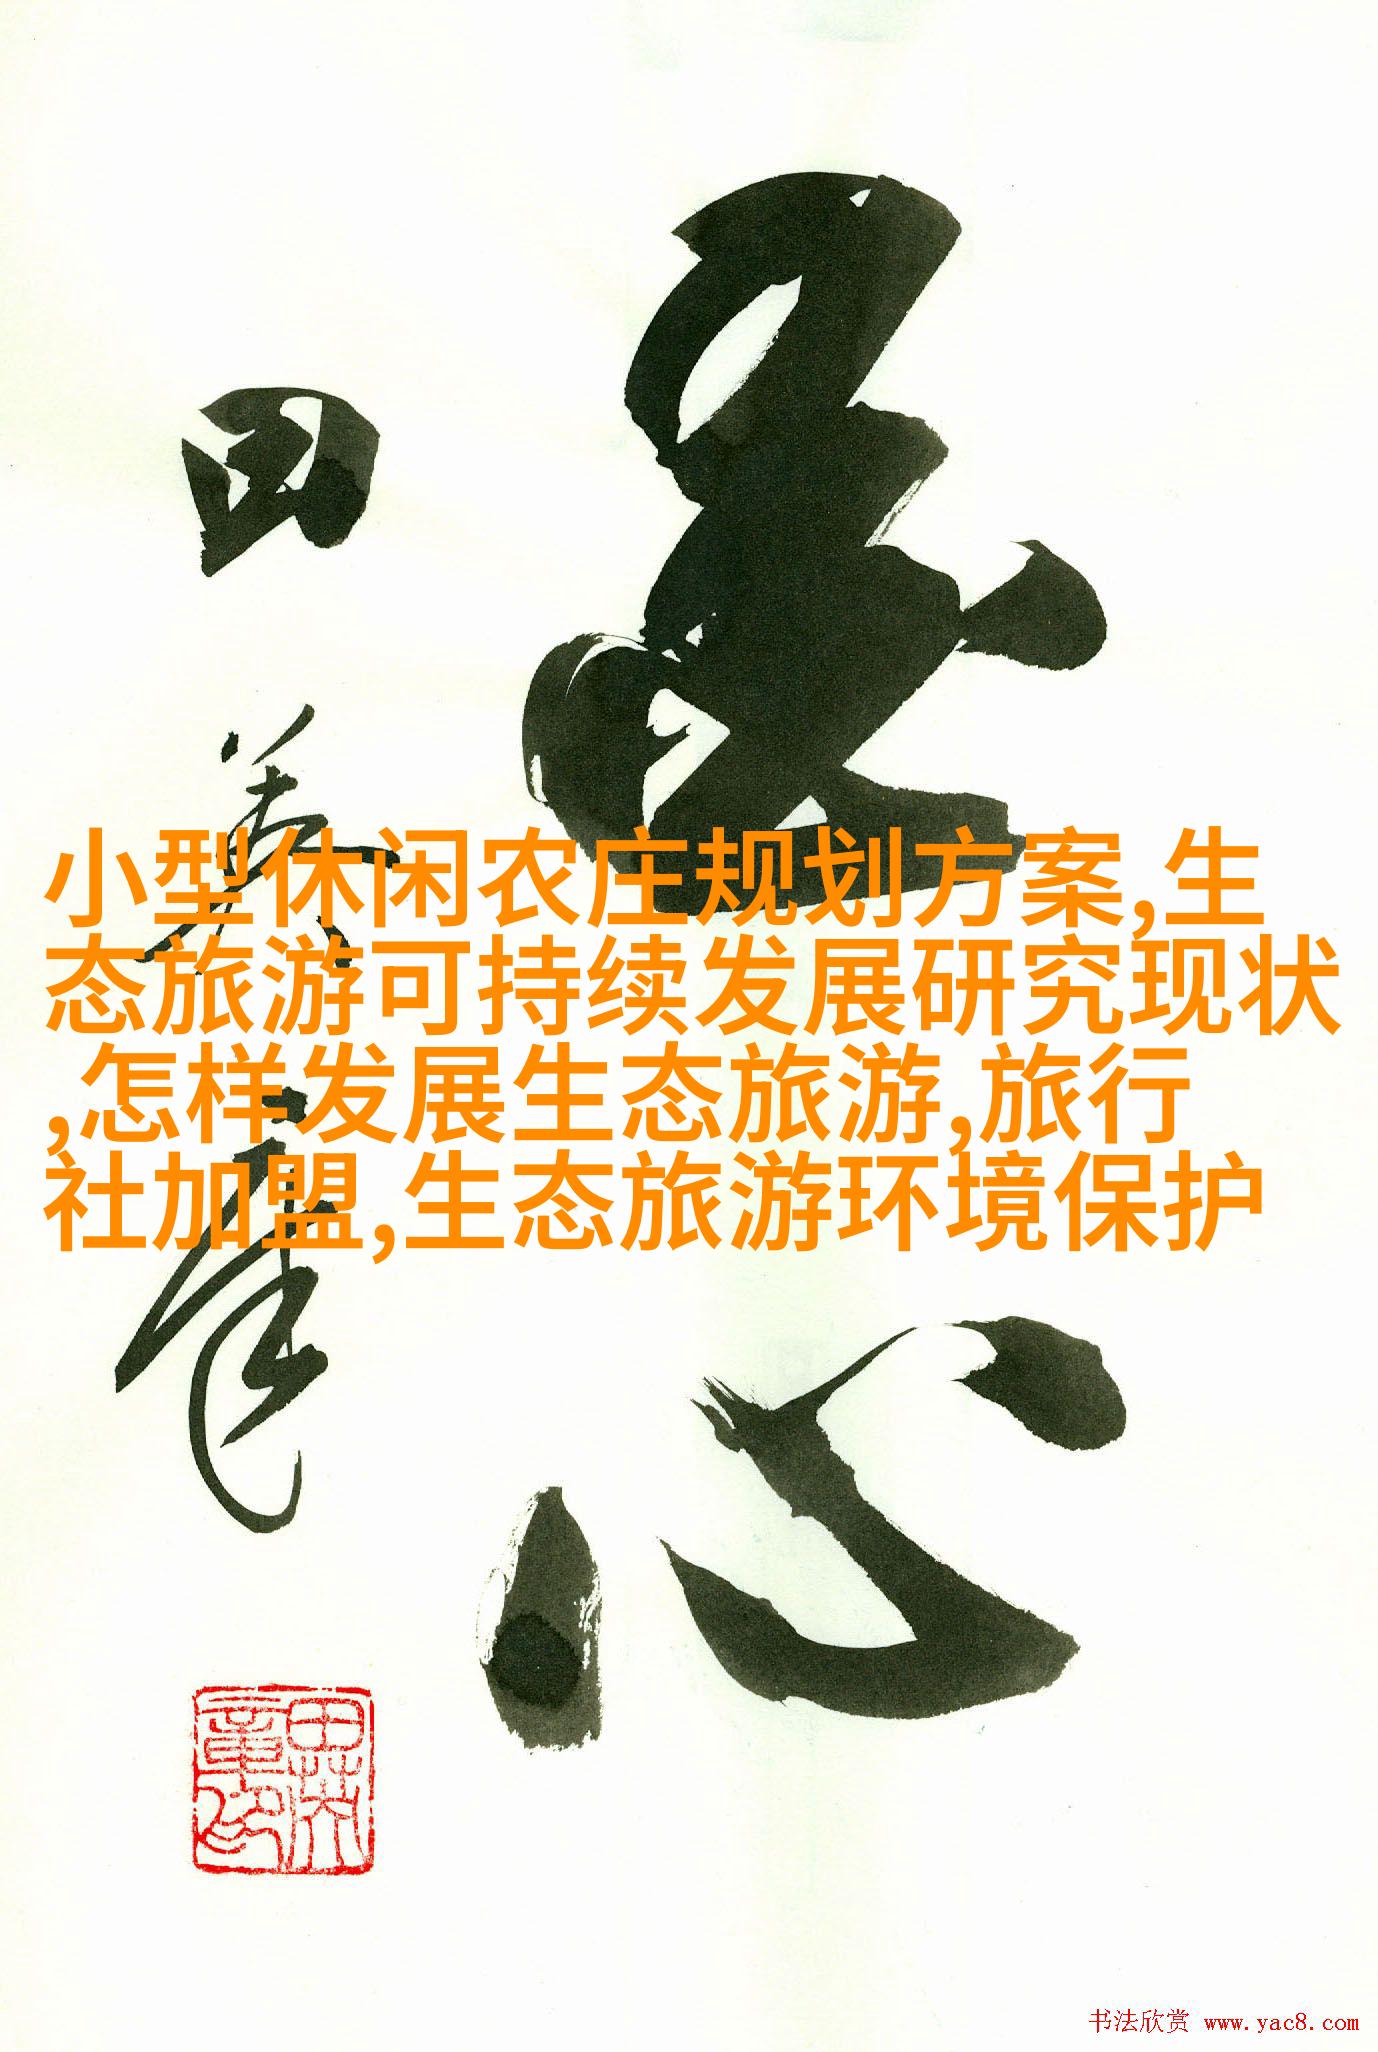 小型休闲农庄规划方案,生
态旅游可持续发展研究现状
,怎样发展生态旅游,旅行
社加盟,生态旅游环境保护
心
田
书法欣赏 www.yac8.com